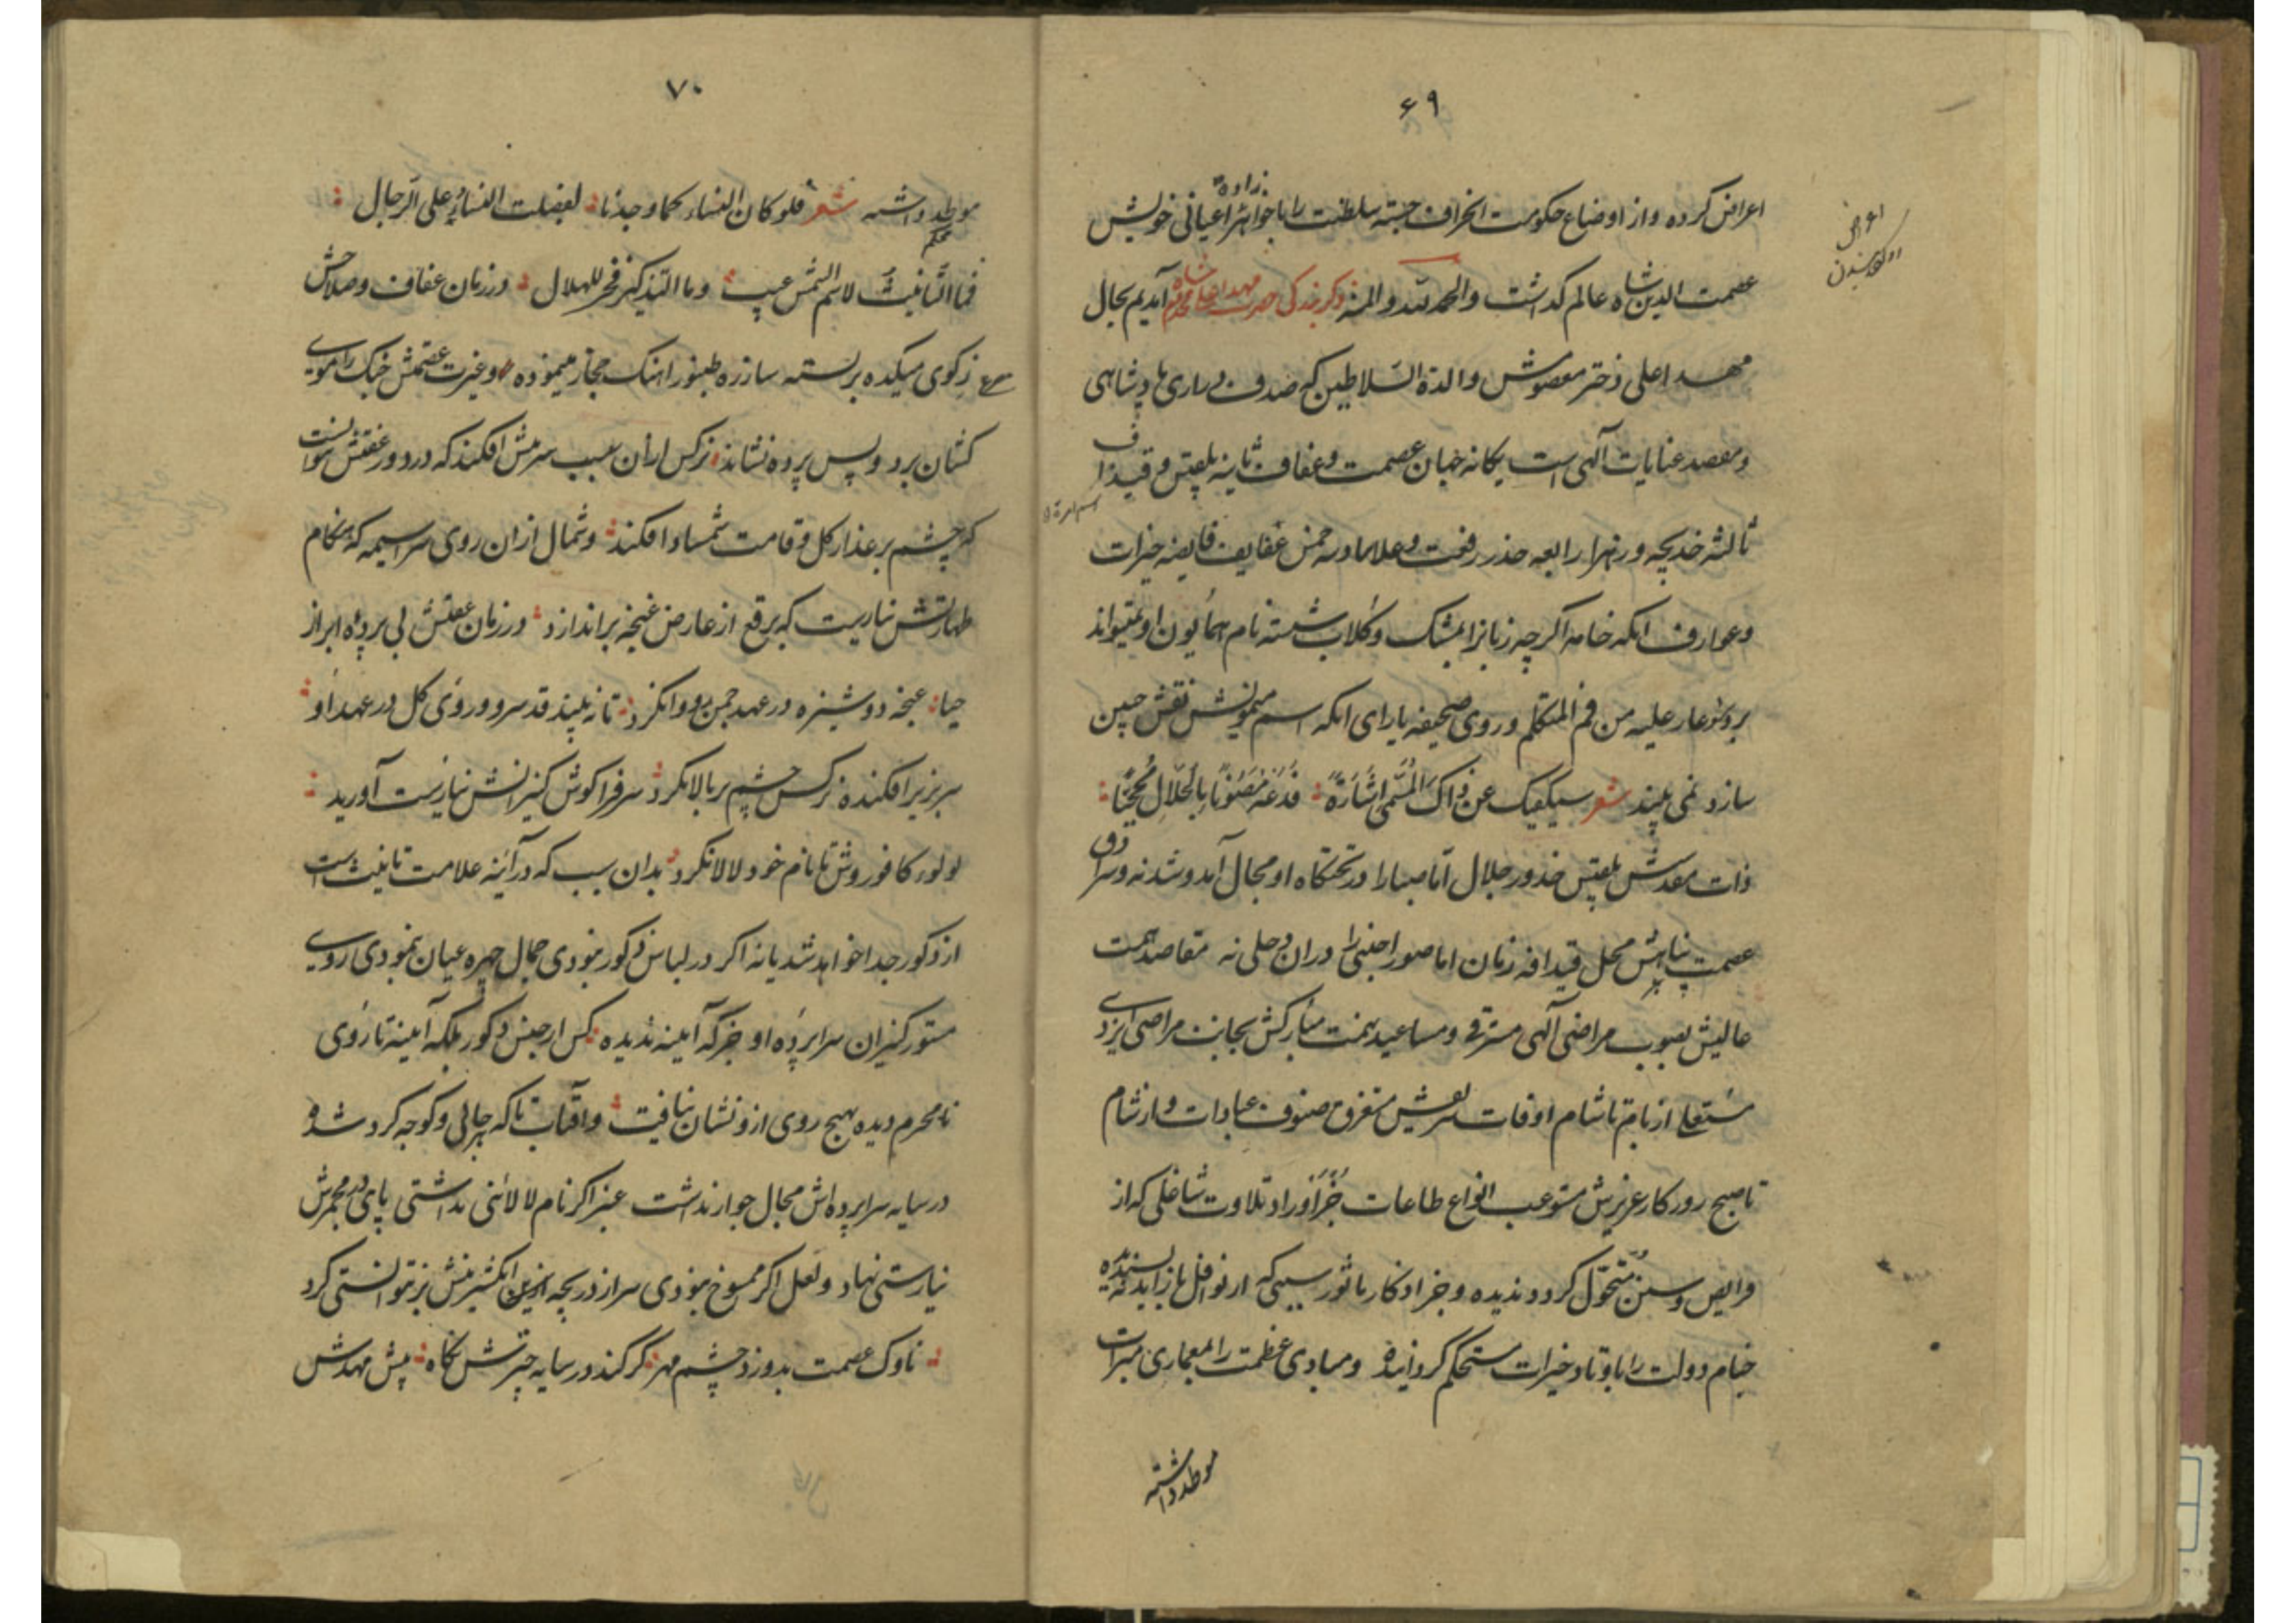 ۶۹
اعراض کرده و از اوضاع حکومت انحراف جسته سلطنت را با خواهرزاده اعیانی خویش
عصمت الدین شاه عالم گذاشت والحمد لله والمنه ذکر بندگی حضرت مهد اعلی آمدیم بحال
مهد اعلی دختر معصومش والدة السلاطین که صدف دراری پادشاهی
و مقصد عنایات آلهی است یکانه جهان عصمت و عفاف ثانیه بلقیس و قیدافه
ثالثه خدیجه و زهرا رابعه خدر رفعت و علا فایضه خیرات
و عوارف انکه خامه اکرچه زبانرا بمشک و کلاب شسته نام همایون او نمیتواند
برد عار علیه من فم المتکلم و روی صحیفه یارای انکه اسم میمونش نقش جبین
سازد نمی بیند شعر سیکفیک عن ذاک المسمی اشارة فدعه مصونا بالجلال محجبا
ذات مقدسش بلقیس خدور جلال اما صبا را در تختکاه او مجال آمد و شد نه و سرادق
عصمت پناهش محل قیدافه زمان اما صور اجنبی را دران دخلی نه مقاصد همت
عالیش بصوب مراضی آلهی مترقی و مساعی همت مبارکش بجانب مراضی ایزدی
از بام تا شام اوقات شریفش مستغرق صنوف عبادات و از شام
تا صبح روزکار عزیزش مستوعب انواع طاعات جز اوراد تلاوت شاغلی که از
فرایض و سنن متحول کردد ندیده و جز اذکار ماثور سببی که از نوافل باز آید نه پسندیده
خیام دولت را باوتاد خیرات مستحکم کردانیده و مبادی عظمت را بمعماری مبرات
موطد داشته
۷۰
موطد داشته شعر فلو کان النساء کما وجدنا لفضلت النساء علی الرجال
محکم
فما التانیث لاسم الشمس عیب وما التذکیر فخر للهلال در زمان عفاف و صلاحش
ز کوی میکده بربسته سازره طنبور اهنک حجاز مینموده و غیرت عصمتش چنک را موی
کشان برد و پس پرده نشاند نرکس ازان سبب سرمش افکند که در دور عفتش نتوانست
که چشم بر عذار کل و قامت شمشاد افکند و شمال ازان روی سراسیمه که هنکام
طهارتش نیارست که برقع از عارض غنچه براندازد در زمان عفتش بی پرده ابراز
حیا غنچه دوشیزه در عهد چمن رو وا نکرد تا نه بیند قد سرو و روی کل در عهد او
سر بزیر افکنده نرکس چشم بر بالا نکرد سر فرا کوش کنیزانش نیارست آورید
لولو کافوروش تا نام خود لالا نکرد بدان سبب که در آینه علامت تانیث است
از ذکور جدا خواهد شد یا نه اکر در لباس ذکور بودی جمال چهره عیان نمودی از روی
مستور کنیزان سراپرده او جز که آیینه ندیده کس از جنس ذکور بلکه آیینه تا روی
نامحرم دیده بهیچ روی ازو نشان نیافت و آفتاب تا که بهر جائی و کوچه کرد شد
در سایه سراپرده اش مجال جواز نداشت عنبر اکر نام لالائی نداشتی پای در مجمرش
نیارستی نهاد و لعل اکر ممسوخ نبودی سر از دریچه انکشترینش بر نتوانستی کرد
ناوک عصمت بدوزد چشم مهر کر کند در سایه چترش نکاه پیش مهدش